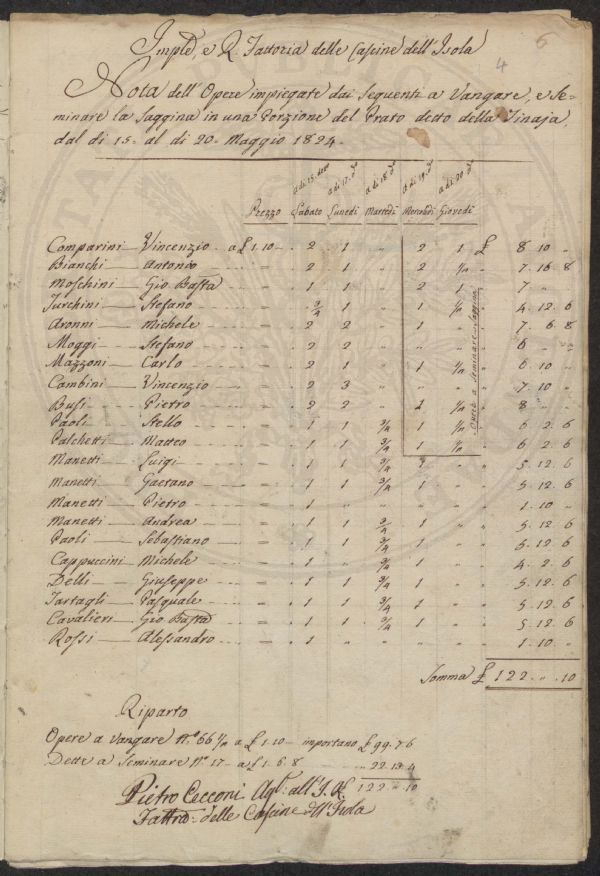 6
4
Imple, e R. Fattoria delle Cascine dell'Isola
Nota dell'Opere impiegate dai Seguenti a Vangare, e Se=
minare la Saggina in una Porzione del Prato detto della Tinaja,
dal di 15. al di 20. Maggio 1824.
a di 15. detto a di 17. do a di 18 do a di 19. do a di 20 do
Prezzo Sabato Lunedi Martedi Mercoldi Giovedi
Comparini Vincenzio a £ 1.10 2 1 " 2 1 £ 8 10 "
Bianchi Antonio = 2 1 " 2 1/2 " 7. 16. 8
Moschini Gio Batta = 1 1 " 2 1 " 7. "
Turchini Stefano = 3/4 1 " 1 1/2 " 4. 12. 6
Aronni Michele = 2 2 " 1 " " 7. 6. 8
Moggi Stefano = 2 2 " " " " 6. " "
Mazzoni Carlo = 2 1 " 1 1/2 " 6. 10 "
Cambini Vincenzio = 2 3 " " " " 7. 10 "
Busi Pietro = 2 2 " 1 1/2 " 8. "
Paoli Stello = 1 1 3/4 1 1/2 " 6. 2. 6
Palchetti Matteo = 1 1 3/4 1 1/2 " 6. 2. 6
Opere a Seminare la Saggina
Manetti Luigi = 1 1 3/4 1 " " 5. 12. 6
Manetti Gaetano = 1 1 3/4 1 " " 5. 12. 6
Manetti Pietro = 1 " " " " " 1. 10 "
Manetti Andrea = 1 1 3/4 1 " " 5. 12. 6
Paoli Sebastiano = 1 1 3/4 1 " " 5. 12. 6
Cappuccini Michele = 1 " 3/4 1 " " 4. 2. 6
Delli Giuseppe = 1 1 3/4 1 " " 5. 12. 6
Tartagli Pasquale = 1 1 3/4 1 " " 5. 12. 6
Cavalieri Gio Batta = 1 1 3/4 1 " " 5. 12. 6
Rossi Alessandro = 1 " " " " " 1. 10 "
Somma £ 122. " . 10
Riparto
Opere a Vangare No. 66 1/2 a £ 1.10 importano £ 99. 7 6
Dette a Seminare No 17 a £ 1. 6. 8 " 22. 13. 4
122 " 10
Pietro Cecconi Agte. all'I. R.
Fattra. delle Cascine dell'Isola